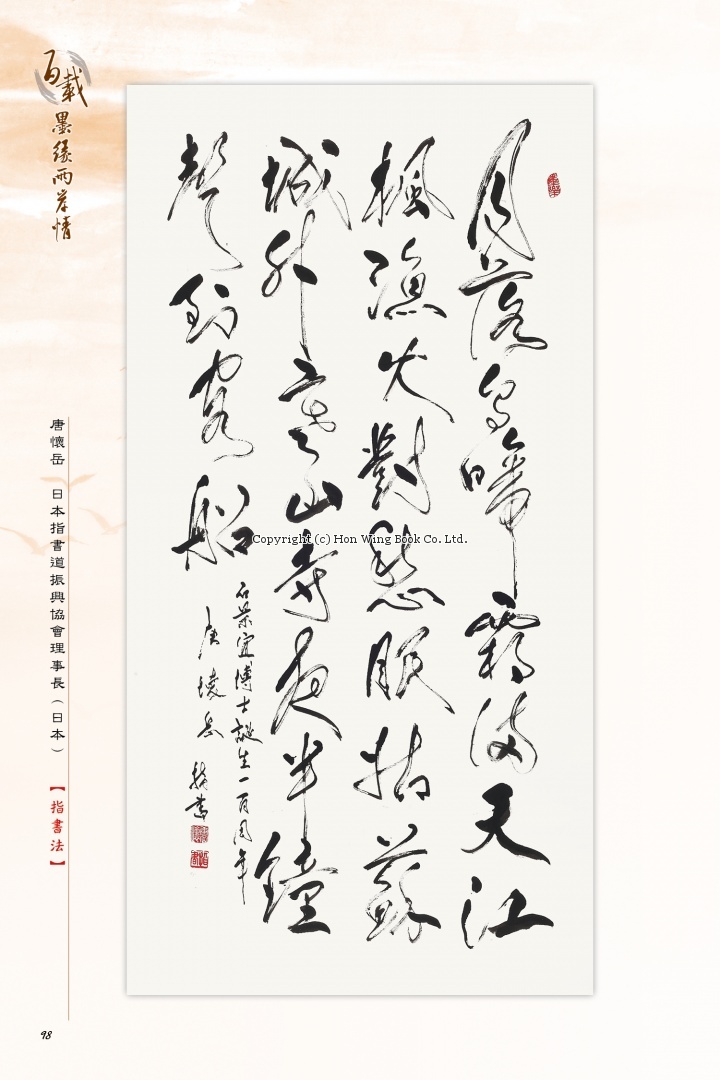 月落烏啼霜滿天江
楓漁火對愁眠姑蘇
城外寒山寺夜半鐘
聲到客船
石景宜博士誕生一百周年
唐懷岳 指書
百載墨緣兩岸情
唐懷岳 日本指書道振興協會理事長（日本）
【指書法】
Copyright (c) Hon Wing Book Co. Ltd.
98